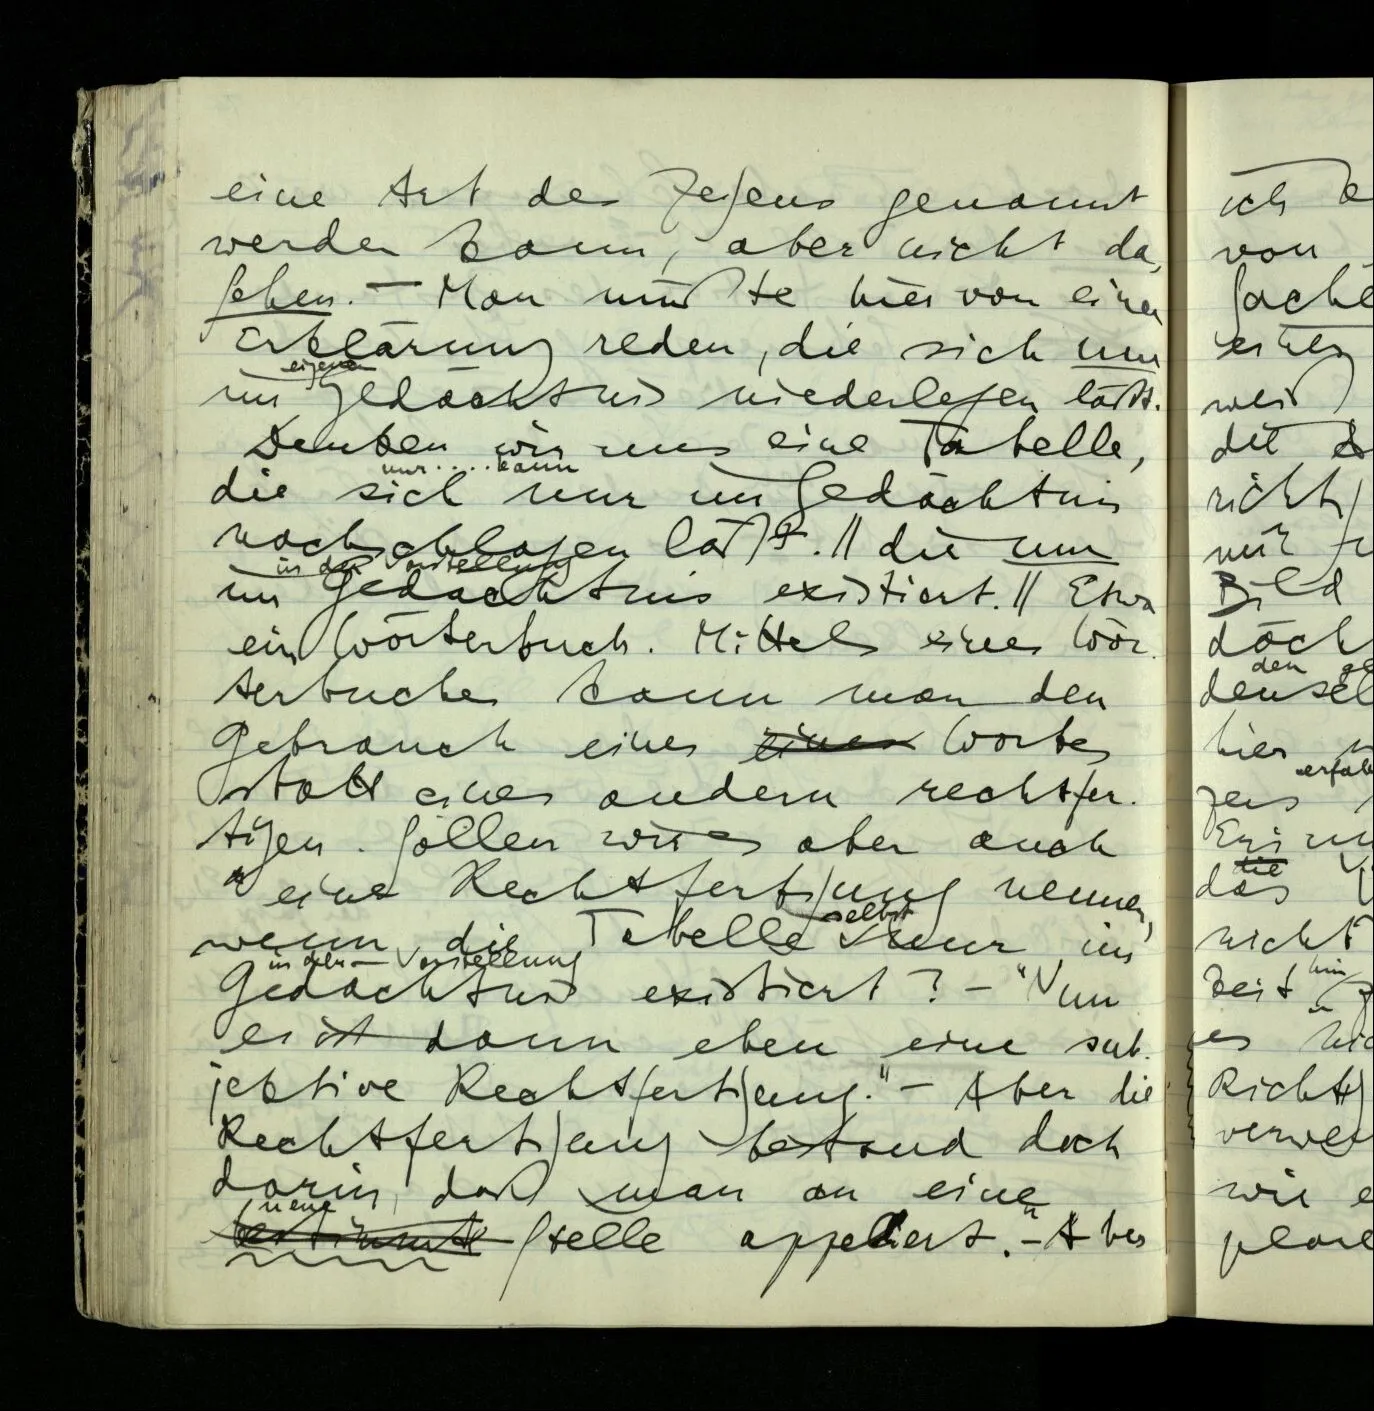 eine Art des Zeigens genannt
werden kann, aber nicht da,
Sehen. — Man müßte hier von einer
Erklärung reden, die sich nur
eigenen
im Gedächtnis niederlegen läßt.
Denken wir uns eine Tabelle,
nur.....kann
die sich nur im Gedächtnis
nachschlagen läßt. // die nur
in der Vorstellung
im Gedächtnis existiert. // Etwa
ein Wörterbuch. Mittels eines Wör-
terbuches kann man den
Gebrauch eines eines Wortes
statt eines andern rechtfer-
tigen. Sollen wir es aber auch
eine Rechtfertigung nennen,
selbst
wenn die Tabelle nur im
in der — Vorstellung
Gedächtnis existiert? — "Nun
es ist dann eben eine sub-
jektive Rechtfertigung." — Aber die
Rechtfertigung bestand doch
darin, daß man an eine
neue
bestimmte Stelle appeliert. — "Aber
ich
von
Sache
weiß
richtig
mir
Bild
däch
den
densel
hier
Erin
die
das
nicht
hin
Zeit
es
Richtig
verwe
wie e